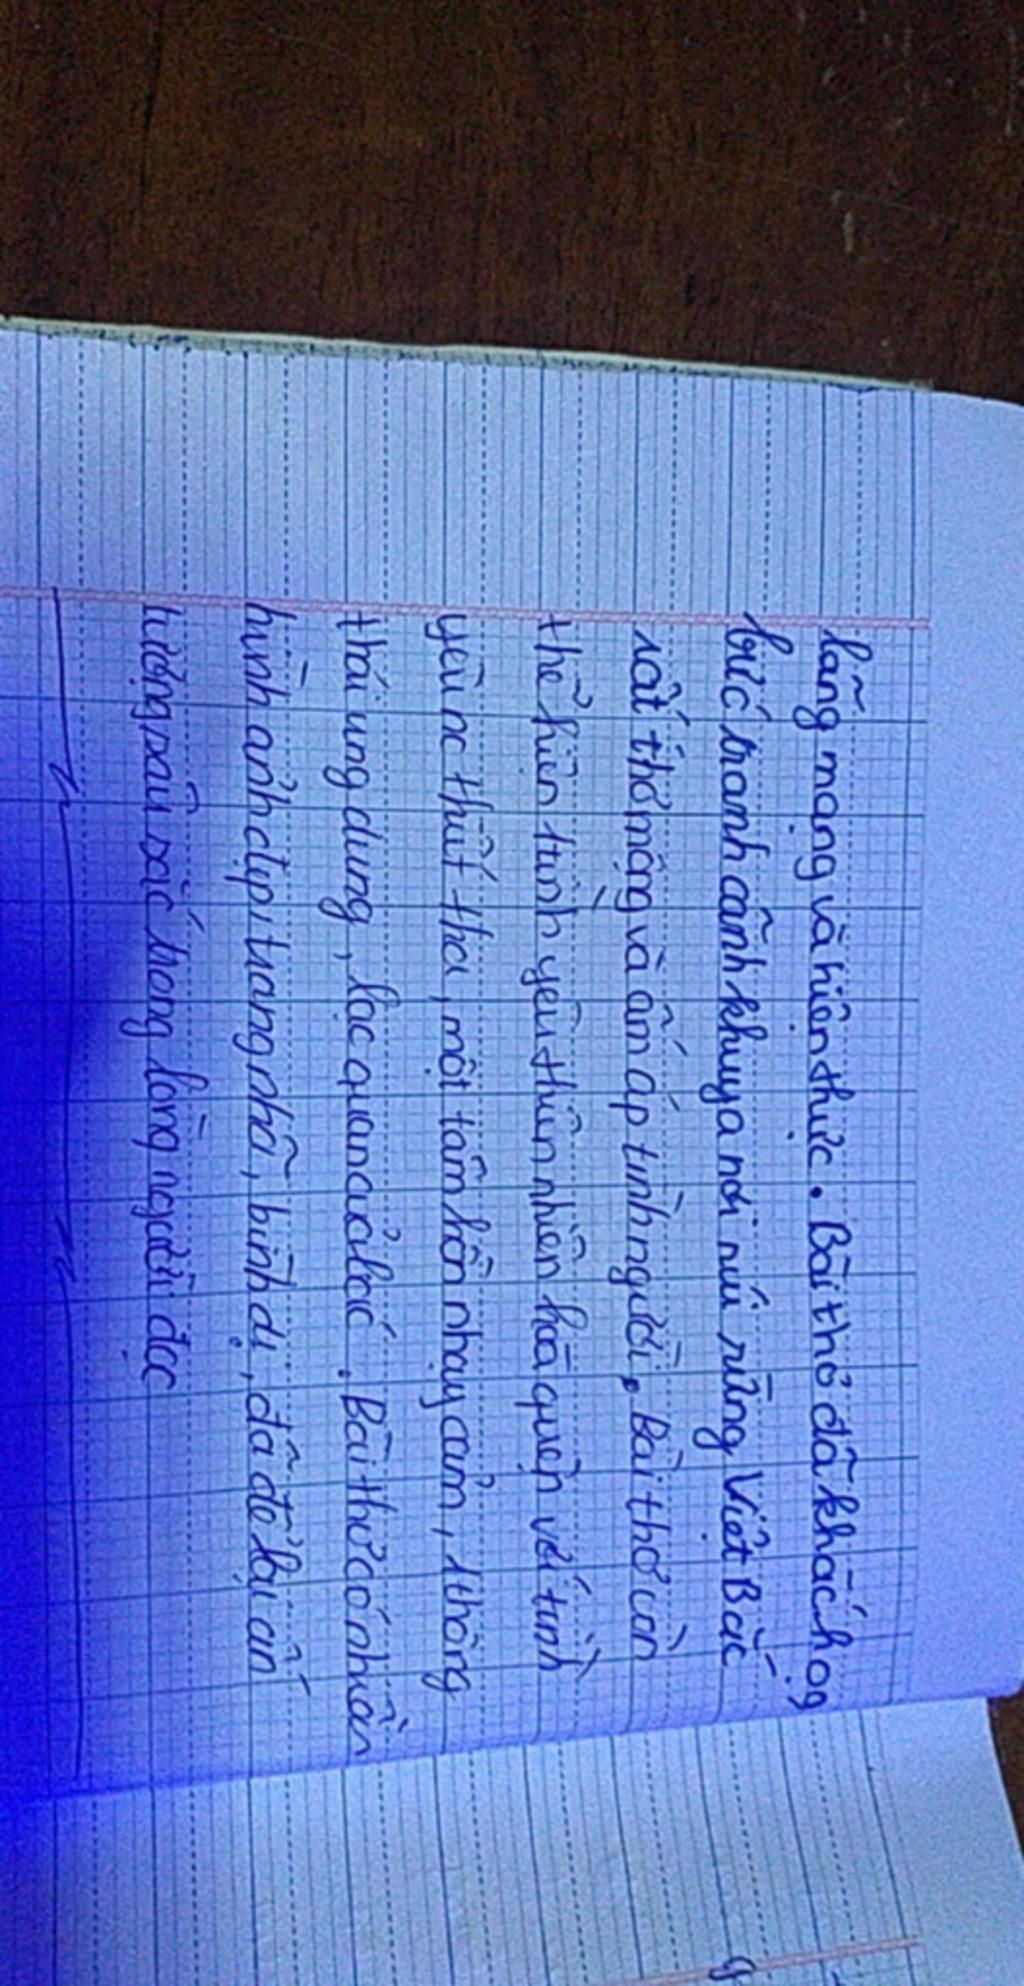 lãng mạng và hiện thực. Bài thơ đã khắc họg
bức tranh cảnh khuya nơi núi rừng Việt Bắc
rất thơ mộng và ấm áp tình người. Bài thơ còn
thể hiện tình yêu thiên nhiên hoà quyện với tình
yêu nc thiết tha, một tâm hồn nhạy cảm, 1 thông
thái ung dung, lạc quan của bác. Bài thơ có nhiều
hình ảnh đẹp, trang nhã, bình dị, đã để lại ấn
tượng sâu sắc trong lòng người đọc